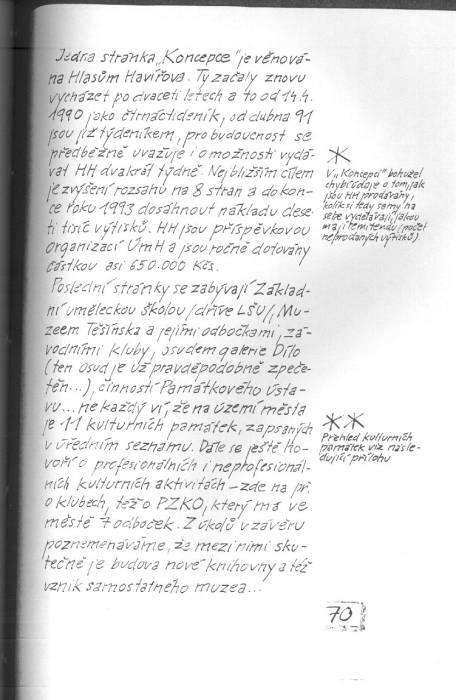 Jedna stránka „Koncepce" je věnová-
na Hlasům Havířova. Ty začaly znovu
vycházet po dvaceti letech a to od 14.4.
1990 jako čtrnáctideník, od dubna 91
jsou již týdeníkem, pro budoucnost se
předběžně uvažuje i o možnosti vydá-
vat HH dvakrát týdně. Nejbližším cílem
je zvýšení rozsahu na 8 stran a do kon-
ce roku 1993 dosáhnout nákladu dese-
ti tisíc výtisků. HH jsou příspěvkovou
organizací ÚmH a jsou ročně dotovány
částkou asi 650.000 Kčs.
Poslední stránky se zabývají Základ-
ní uměleckou školou /dříve LŠU/, Mu-
zeem Těšínska a jejími odbočkami, zá-
vodními kluby, osudem galerie Dílo
(ten osud je už pravděpodobně zpeče-
těn...), činností Památkového ústa-
vu... ne každý ví, že na území města
je 11 kulturních památek, zapsaných
v úředním seznamu. Dále se ještě ho-
voří o profesionálních i neprofesionál-
ních kulturních aktivitách – zde na př.
o klubech, též o PZKO, který má ve
městě 7 odboček. Z úkolů v závěru
poznamenáváme, že mezi nimi sku-
tečně je budova nové knihovny a též
vznik samostatného muzea...
*
V „Koncepci" bohužel
chybí údaje o tom, jak
jsou HH prodávány,
kolik si tedy samy na
sebe vydělávají, jakou
mají remitendu (počet
neprodaných výtisků).
**
Přehled kulturních
památek viz násle-
dující přílohu
70